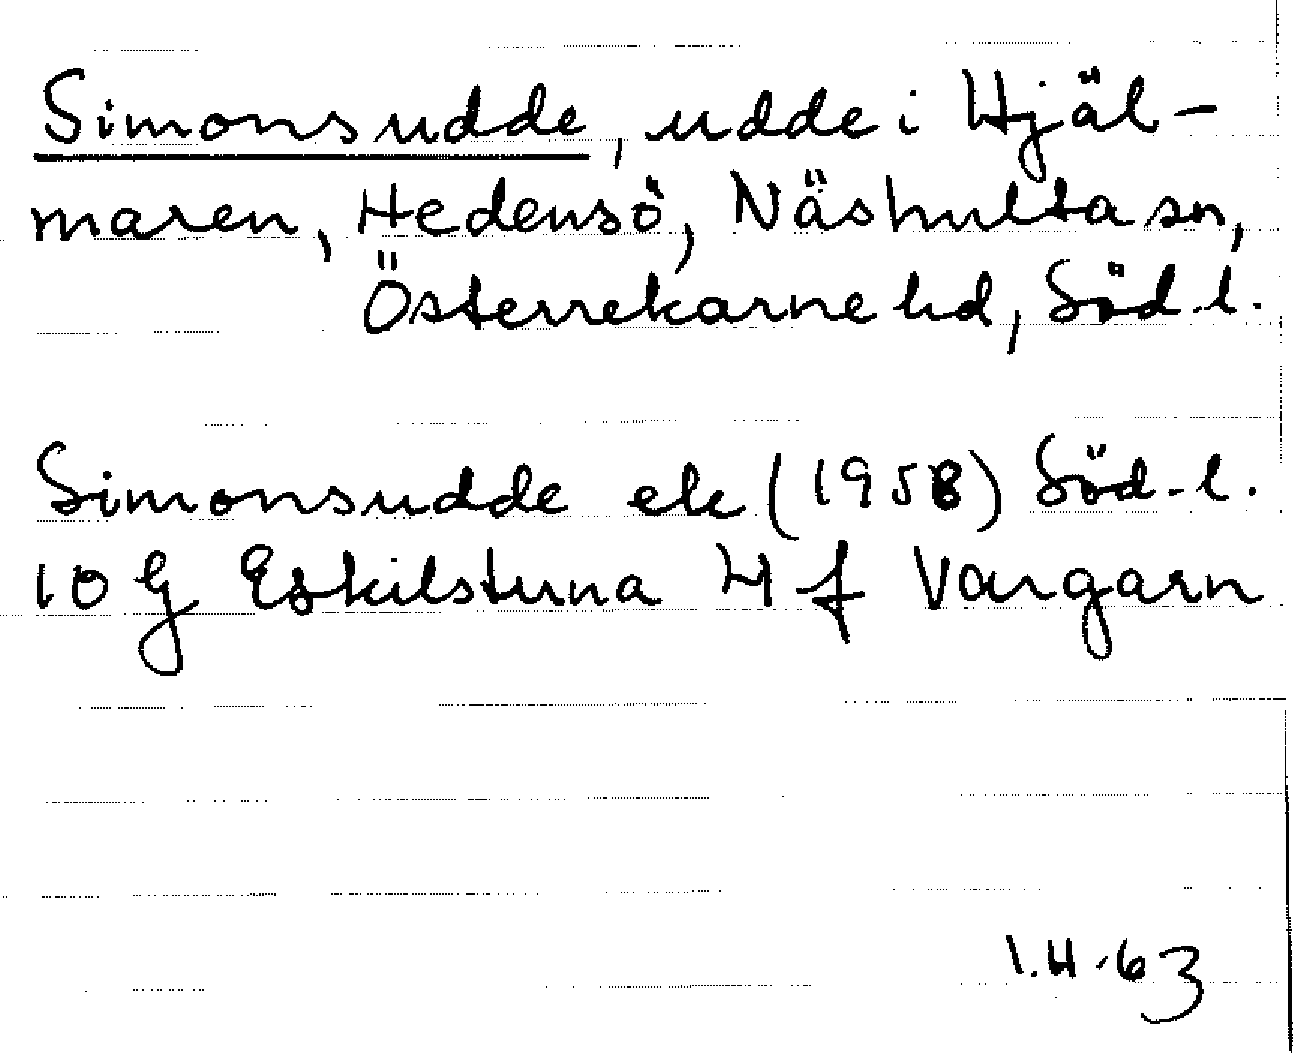 Simonsudde, udde i Hjäl-
maren, Hedensö, Näshulta sn,
Österrekarne hd, Söd.l.
Simonsudde ek (1958) Söd.l.
10 G Eskilstuna 4 f Vargarn
I.H.63